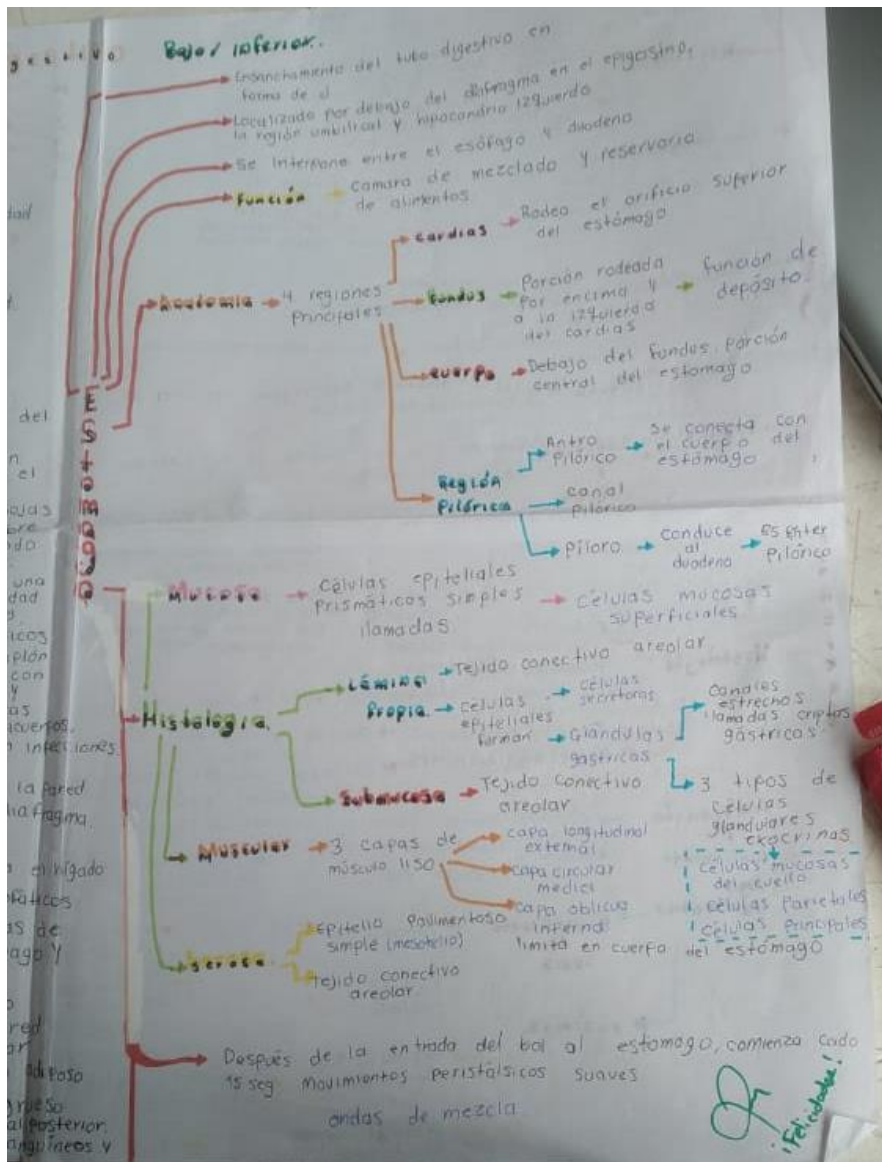 Bajo/inferior.
Ensanchamiento del tubo digestivo en
forma de J
Localizado por debajo del diafragma en el epigastrio,
la región umbilical y hipocondrio izquierdo
Se interpone entre el esófago y duodeno
Función
Camara de mezclado y reservorio
de alimentos
Estomago
Anatomia
4 regiones
Principales
Cardias
Rodea el orificio superior
del estómago
Fundus
Porción rodeada
por encima y
a la izquierda
del cardias
función de
depósito.
Cuerpo
Debajo del fondus, porción
central del estomago
Región
Pilórica
Antro
Pilórico
Se conecta con
el cuerpo del
estómago
canal
Pilórico
Píloro
conduce
al
duodeno
Esfínter
Pilórico
Histologia
Mucosa
Células epiteliales
Prismáticos simples
llamadas
Células mucosas
superficiales
Lámina
Propia
Tejido conectivo areolar
células
epiteliales
forman
células
secretoras
Glándulas
gástricas
Canales
estrechos
llamadas criptas
gástricas
3 tipos de
células
glandulares
exocrinas
células mucosas
del cuello
células Parietales
células Principales
Submucosa
Tejido conectivo
areolar
Muscular
3 capas de
músculo liso
capa longitudinal
externa
capa circular
media
capa oblicua
interna
limita en cuerpo del estómago
Serosa
Epitelio Pavimentoso
simple (mesotelio)
Tejido conectivo
areolar
Después de la entrada del bol al estomago, comienza cada
15 seg movimientos peristálsicos suaves
ondas de mezcla
¡Felicidades!
del
el
una
dad
icos
con
y
as
infecciones
la pared
diafragma.
el hígado
as de
ago y
red
adiposo
grueso
al posterior.
sanguíneos y